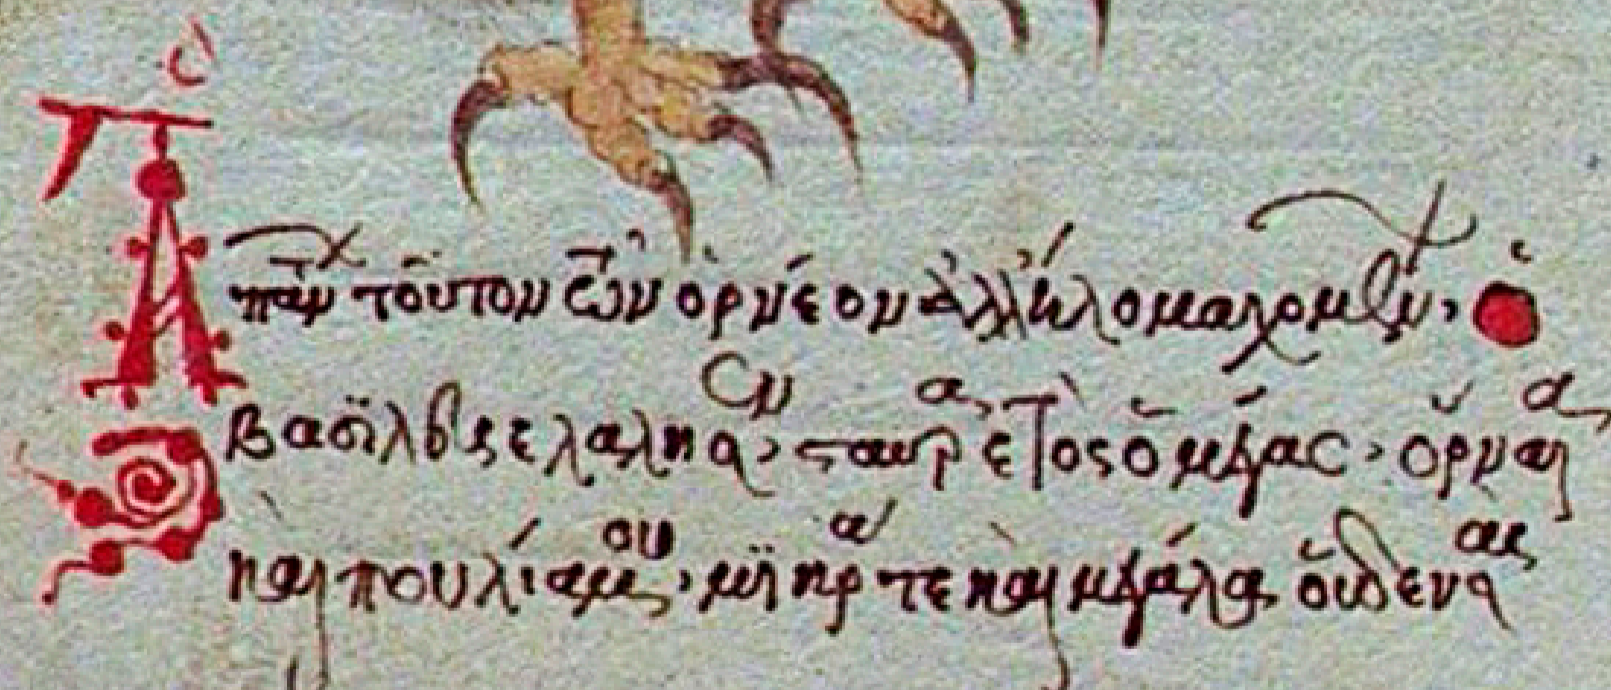 Ἀπάντων τούτον τῶν ὀρνέον ἀλλήλομαχομένων, ὁ
βασιλεὺς ελαλησεν, σταυραετὸς ὁ μέγας, ὄρναια
καὶ πουλία μου, μϊκρά τε καὶ μεγάλα οὐδένας